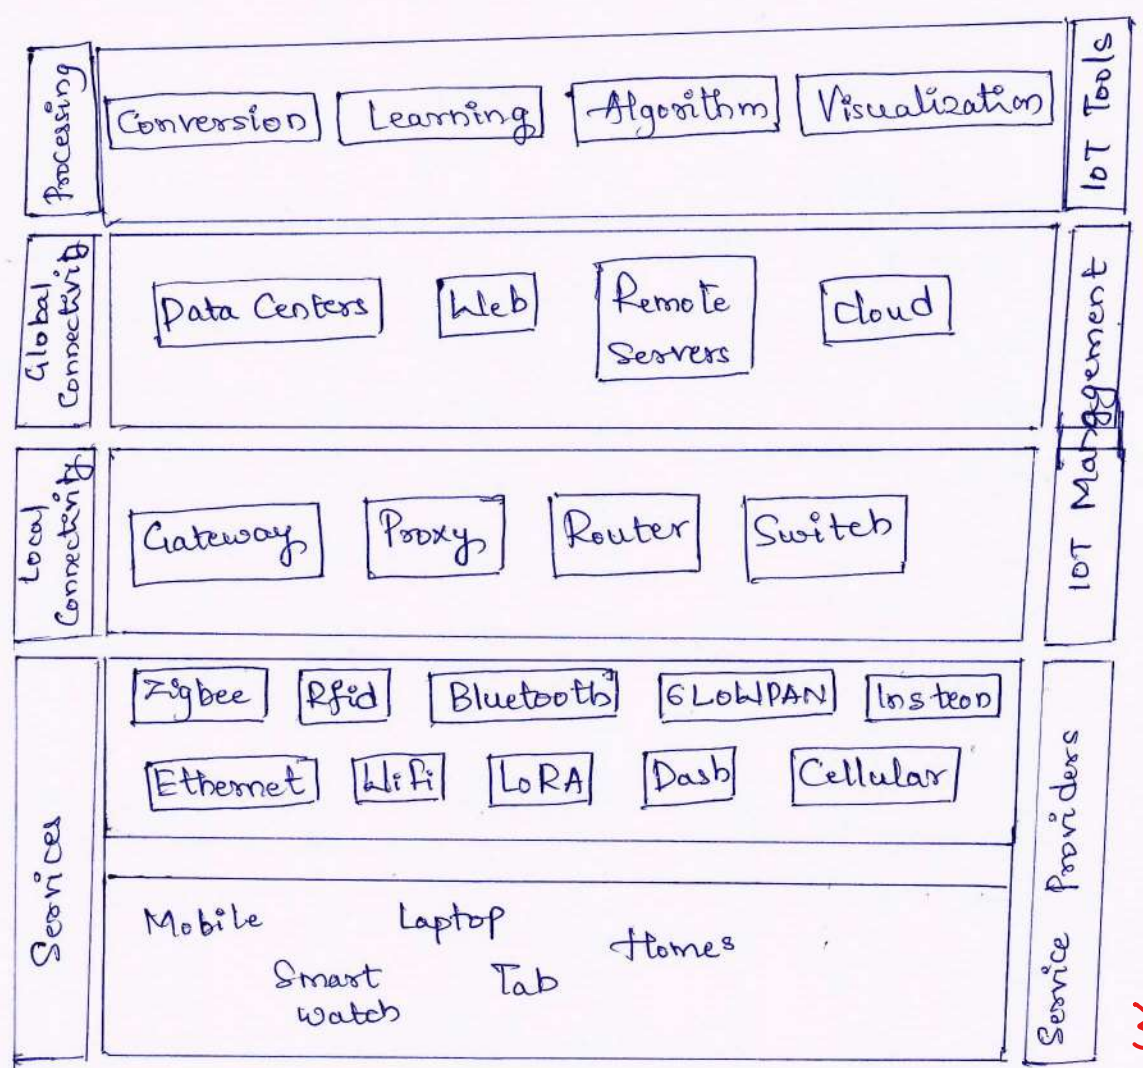 Processing
Conversion
Learning
Algorithm
Visualization
IoT Tools
Global
Connectivity
Data Centers
Web
Remote
Servers
Cloud
IOT Management
Local
Connectivity
Gateway
Proxy
Router
Switch
Services
Zigbee
Rfid
Bluetooth
6LOWPAN
Insteon
Ethernet
Wifi
LoRA
Dash
Cellular
Mobile
Laptop
Homes
Smart
watch
Tab
Service Providers